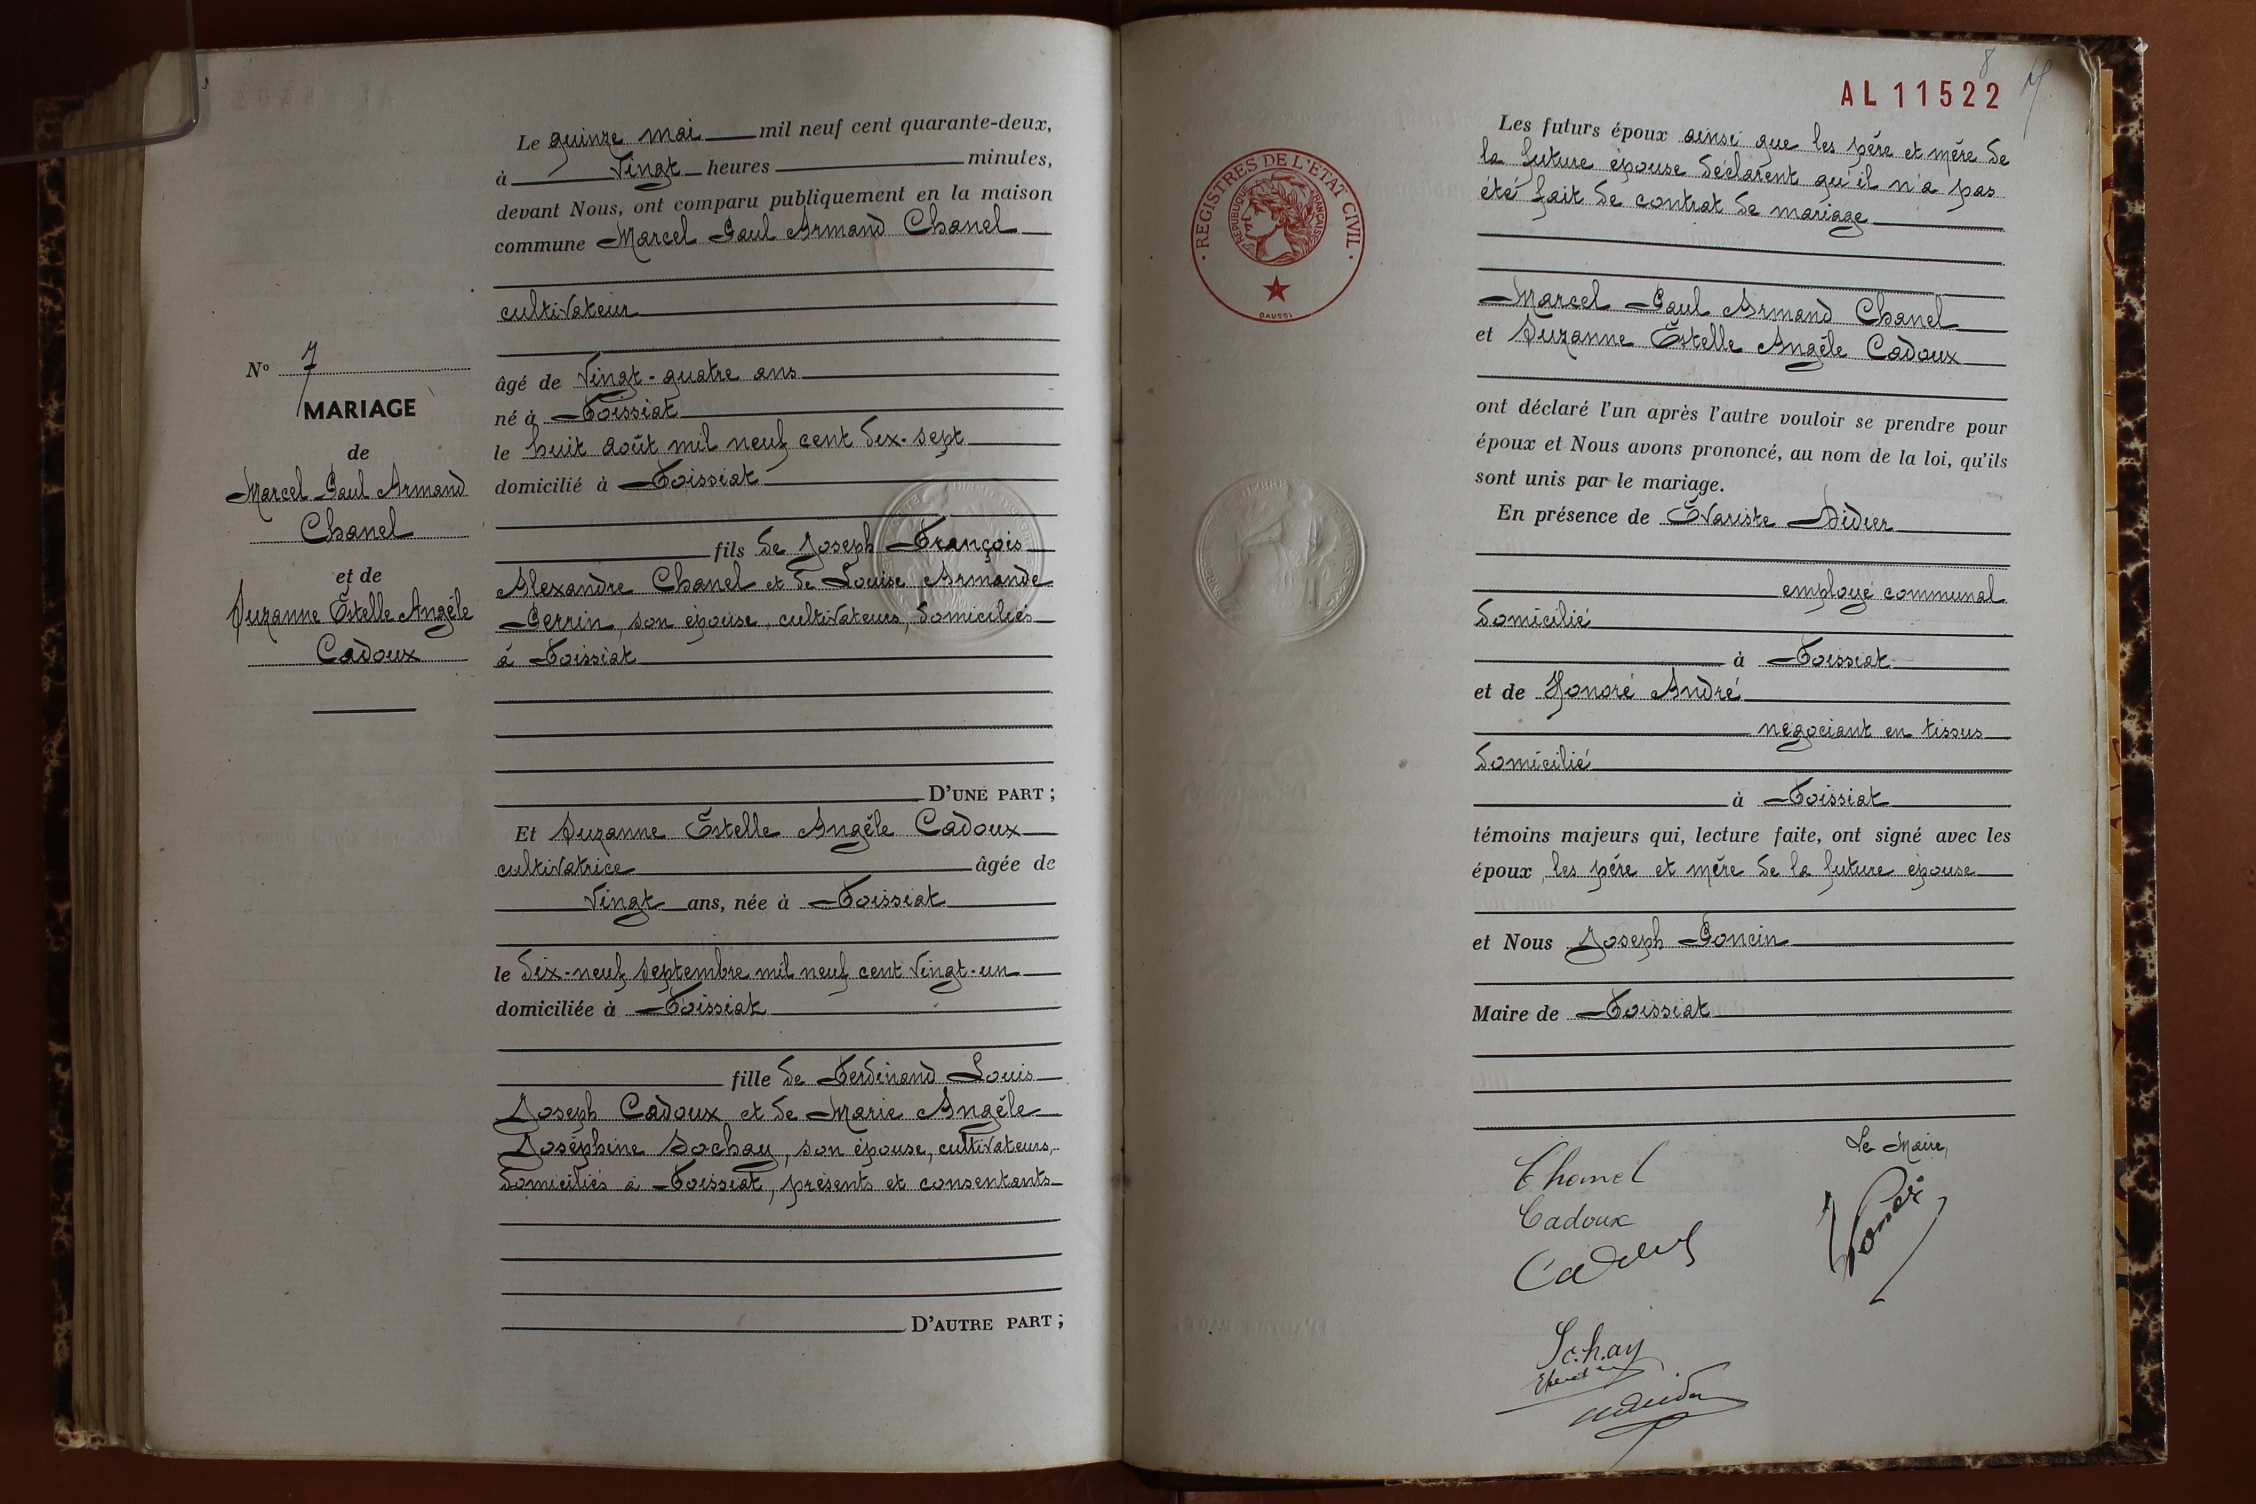 Le quinze mai mil neuf cent quarante-deux,
à Vingt heures minutes,
devant Nous, ont comparu publiquement en la maison
commune Marcel Paul Armand Chanel
cultivateur
âgé de Vingt-quatre ans
né à Foissiat
le huit août mil neuf cent dix-sept
domicilié à Foissiat
fils de Joseph François
Alexandre Chanel et de Louise Armande
Perrin, son épouse, cultivateurs, domiciliés
à Foissiat
D'UNE PART ;
Et Suzanne Estelle Angèle Cadoux
cultivatrice âgée de
Vingt ans, née à Foissiat
le dix-neuf septembre mil neuf cent vingt-un
domiciliée à Foissiat
fille de Ferdinand Louis
Joseph Cadoux et de Marie Angèle
Joséphine Sochay, son épouse, cultivateurs,
domiciliés à Foissiat, présents et consentants
D'AUTRE PART ;
No 7
MARIAGE
de
Marcel Paul Armand
Chanel
et de
Suzanne Estelle Angèle
Cadoux
8
AL 11522
REGISTRES DE L'ETAT CIVIL
REPUBLIQUE FRANÇAISE
Les futurs époux ainsi que les père et mère de
la future épouse déclarent qu'il n'a pas
été fait de contrat de mariage
Marcel Paul Armand Chanel
et Suzanne Estelle Angèle Cadoux
ont déclaré l'un après l'autre vouloir se prendre pour
époux et Nous avons prononcé, au nom de la loi, qu'ils
sont unis par le mariage.
En présence de Evariste Didier
employé communal
domicilié
à Foissiat
et de Honoré André
négociant en tissus
domicilié
à Foissiat
témoins majeurs qui, lecture faite, ont signé avec les
époux, les père et mère de la future épouse
et Nous Joseph Poncin
Maire de Foissiat
Le Maire,
Chanel
Cadoux
Cadoux